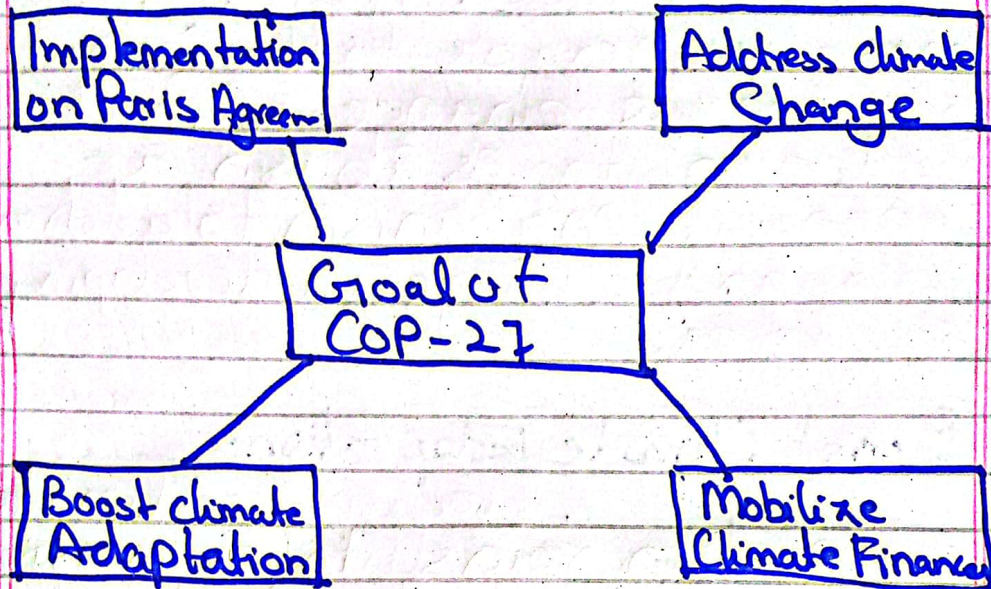 Implementation
on Paris Agreem
Address climate
Change
Goal of
COP-27
Boost climate
Adaptation
Mobilize
Climate Finance